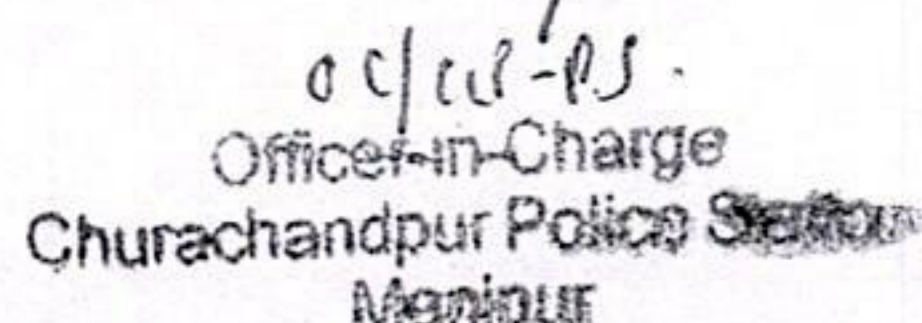 OC/CCP-PS.
Officer-in-Charge
Churachandpur Police Station
Manipur